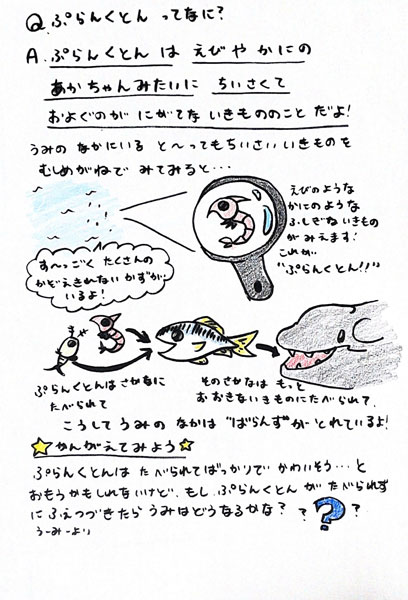 Q. ぷらんくとん ってなに?
A. ぷらんくとん は えびや かにの
あかちゃんみたいに ちいさくて
およぐのが にがてな いきもののこと だよ!
うみの なかにいる と〜ってもちいさい いきものを
むしめがねで みてみると・・・
えびのような
かにのような
ふしぎないきもの
がみえます!
これが
"ぷらんくとん!!"
す〜っごく たくさんの
かぞえきれない かずが
いるよ!
ぷらんくとんは さかなに
たべられて
そのさかなは もっと
おおきないきものにたべられ?
こうして うみの なかは "ばらんす"が とれているよ!
かんがえてみよう
ぷらんくとんは たべられてばっかりで かわいそう・・・と
おもうかもしれないけど、もし ぷらんくとん が たべられず
に ふえつづきたら うみはどうなるかな? ? ? ?
うーみーより